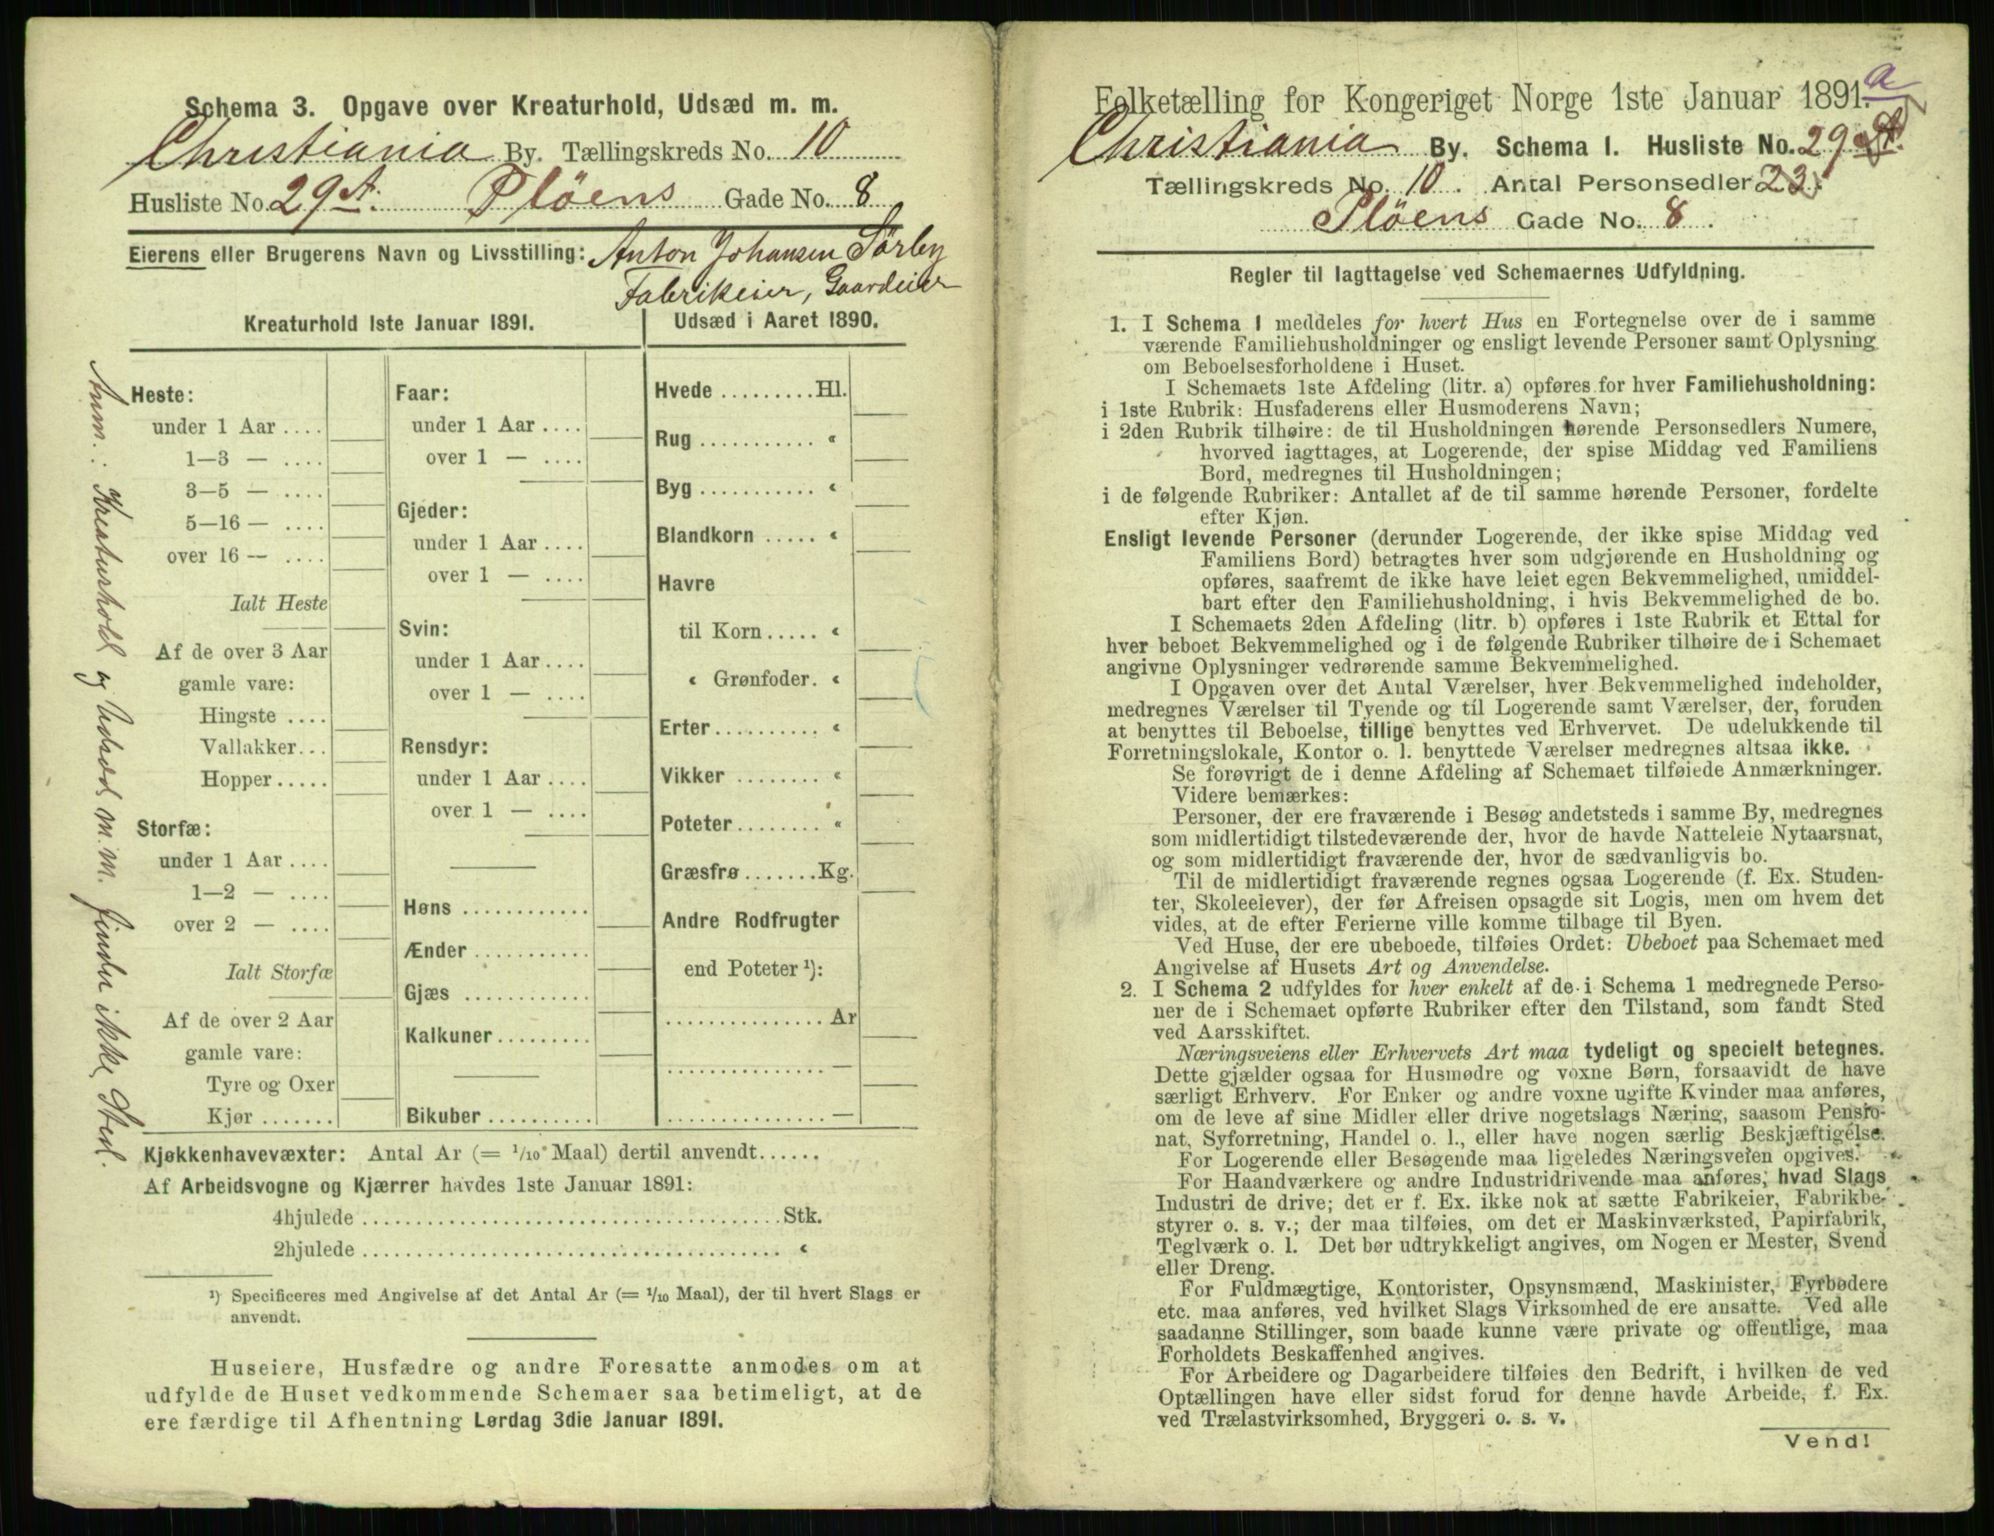 Schema 3. Opgave over Kreaturhold, Udsæd m. m.
Christiania By. Tællingskreds No. 10
Husliste No. 29 A. Plöens Gade No. 8
Eierens eller Brugerens Navn og Livsstilling: Anton Johansen Sörby
Fabrikeier, Gaardeier
Kreaturhold 1ste Januar 1891.
Heste:
under 1 Aar ....
1—3 — ....
3—5 — ....
5—16 — ....
over 16 — ....
Ialt Heste
Af de over 3 Aar
gamle vare:
Hingste ....
Vallakker...
Hopper.....
Storfæ:
under 1 Aar ....
1—2 — ....
over 2 — ....
Ialt Storfæ
Af de over 2 Aar
gamle vare:
Tyre og Oxer
Kjør .......
Faar:
under 1 Aar ....
over 1 — ....
Gjeder:
under 1 Aar ....
over 1 — ....
Svin:
under 1 Aar ....
over 1 — ....
Rensdyr:
under 1 Aar ....
over 1 — ....
Høns ............
Ænder ...........
Gjæs ............
Kalkuner.........
Bikuber ..........
Udsæd i Aaret 1890.
Hvede .........Hl.
Rug ........... «
Byg ........... «
Blandkorn ..... «
Havre
til Korn..... «
« Grønfoder. «
Erter.......... «
Vikker ........ «
Poteter........ «
Græsfrø.......Kg.
Andre Rodfrugter
end Poteter ¹):
...............Ar
...............—
...............—
Anm.: Kreaturhold og Udsæd m. m. finder ikke Sted.
Kjøkkenhavevæxter: Antal Ar (= 1/10 Maal) dertil anvendt......
Af Arbeidsvogne og Kjærrer havdes 1ste Januar 1891:
4hjulede ........................................Stk.
2hjulede ........................................ «
¹) Specificeres med Angivelse af det Antal Ar (= 1/10 Maal), der til hvert Slags er
anvendt.
Huseiere, Husfædre og andre Foresatte anmodes om at
udfylde de Huset vedkommende Schemaer saa betimeligt, at de
ere færdige til Afhentning Lørdag 3die Januar 1891.
Folketælling for Kongeriget Norge 1ste Januar 1891. a
Christiania By. Schema 1. Husliste No. 29 A.
Tællingskreds No. 10. Antal Personsedler 23.
Plöens Gade No. 8.
Regler til Iagttagelse ved Schemaernes Udfyldning.
1. I Schema 1 meddeles for hvert Hus en Fortegnelse over de i samme
værende Familiehusholdninger og ensligt levende Personer samt Oplysning
om Beboelsesforholdene i Huset.
I Schemaets 1ste Afdeling (litr. a) opføres for hver Familiehusholdning:
i 1ste Rubrik: Husfaderens eller Husmoderens Navn;
i 2den Rubrik tilhøire: de til Husholdningen hørende Personsedlers Numere,
hvorved iagttages, at Logerende, der spise Middag ved Familiens
Bord, medregnes til Husholdningen;
i de følgende Rubriker: Antallet af de til samme hørende Personer, fordelte
efter Kjøn.
Ensligt levende Personer (derunder Logerende, der ikke spise Middag ved
Familiens Bord) betragtes hver som udgjørende en Husholdning og
opføres, saafremt de ikke have leiet egen Bekvemmelighed, umiddel-
bart efter den Familiehusholdning, i hvis Bekvemmelighed de bo.
I Schemaets 2den Afdeling (litr. b) opføres i 1ste Rubrik et Ettal for
hver beboet Bekvemmelighed og i de følgende Rubriker tilhøire de i Schemaet
angivne Oplysninger vedrørende samme Bekvemmelighed.
I Opgaven over det Antal Værelser, hver Bekvemmelighed indeholder,
medregnes Værelser til Tyende og til Logerende samt Værelser, der, foruden
at benyttes til Beboelse, tillige benyttes ved Erhvervet. De udelukkende til
Forretningslokale, Kontor o. l. benyttede Værelser medregnes altsaa ikke.
Se forøvrigt de i denne Afdeling af Schemaet tilføiede Anmærkninger.
Videre bemærkes:
Personer, der ere fraværende i Besøg andetsteds i samme By, medregnes
som midlertidigt tilstedeværende der, hvor de havde Natteleie Nytaarsnat,
og som midlertidigt fraværende der, hvor de sædvanligvis bo.
Til de midlertidigt fraværende regnes ogsaa Logerende (f. Ex. Studen-
ter, Skoleelever), der før Afreisen opsagde sit Logis, men om hvem det
vides, at de efter Ferierne ville komme tilbage til Byen.
Ved Huse, der ere ubeboede, tilføies Ordet: Ubeboet paa Schemaet med
Angivelse af Husets Art og Anvendelse.
2. I Schema 2 udfyldes for hver enkelt af de i Schema 1 medregnede Perso-
ner de i Schemaet opførte Rubriker efter den Tilstand, som fandt Sted
ved Aarsskiftet.
Næringsveiens eller Erhvervets Art maa tydeligt og specielt betegnes.
Dette gjælder ogsaa for Husmødre og voxne Børn, forsaavidt de have
særligt Erhverv. For Enker og andre voxne ugifte Kvinder maa anføres,
om de leve af sine Midler eller drive nogetslags Næring, saasom Pensio-
nat, Syforretning, Handel o. l., eller have nogen særlig Beskjæftigelse.
For Logerende eller Besøgende maa ligeledes Næringsveien opgives.
For Haandværkere og andre Industridrivende maa anføres, hvad Slags
Industri de drive; det er f. Ex. ikke nok at sætte Fabrikeier, Fabrikbe-
styrer o. s. v.; der maa tilføies, om det er Maskinværksted, Papirfabrik,
Teglværk o. l. Det bør udtrykkeligt angives, om Nogen er Mester, Svend
eller Dreng.
For Fuldmægtige, Kontorister, Opsynsmænd, Maskinister, Fyrbødere
etc. maa anføres, ved hvilket Slags Virksomhed de ere ansatte. Ved alle
saadanne Stillinger, som baade kunne være private og offentlige, maa
Forholdets Beskaffenhed angives.
For Arbeidere og Dagarbeidere tilføies den Bedrift, i hvilken de ved
Optællingen have eller sidst forud for denne havde Arbeide, f. Ex.
ved Trælastvirksomhed, Bryggeri o. s. v.
Vend!